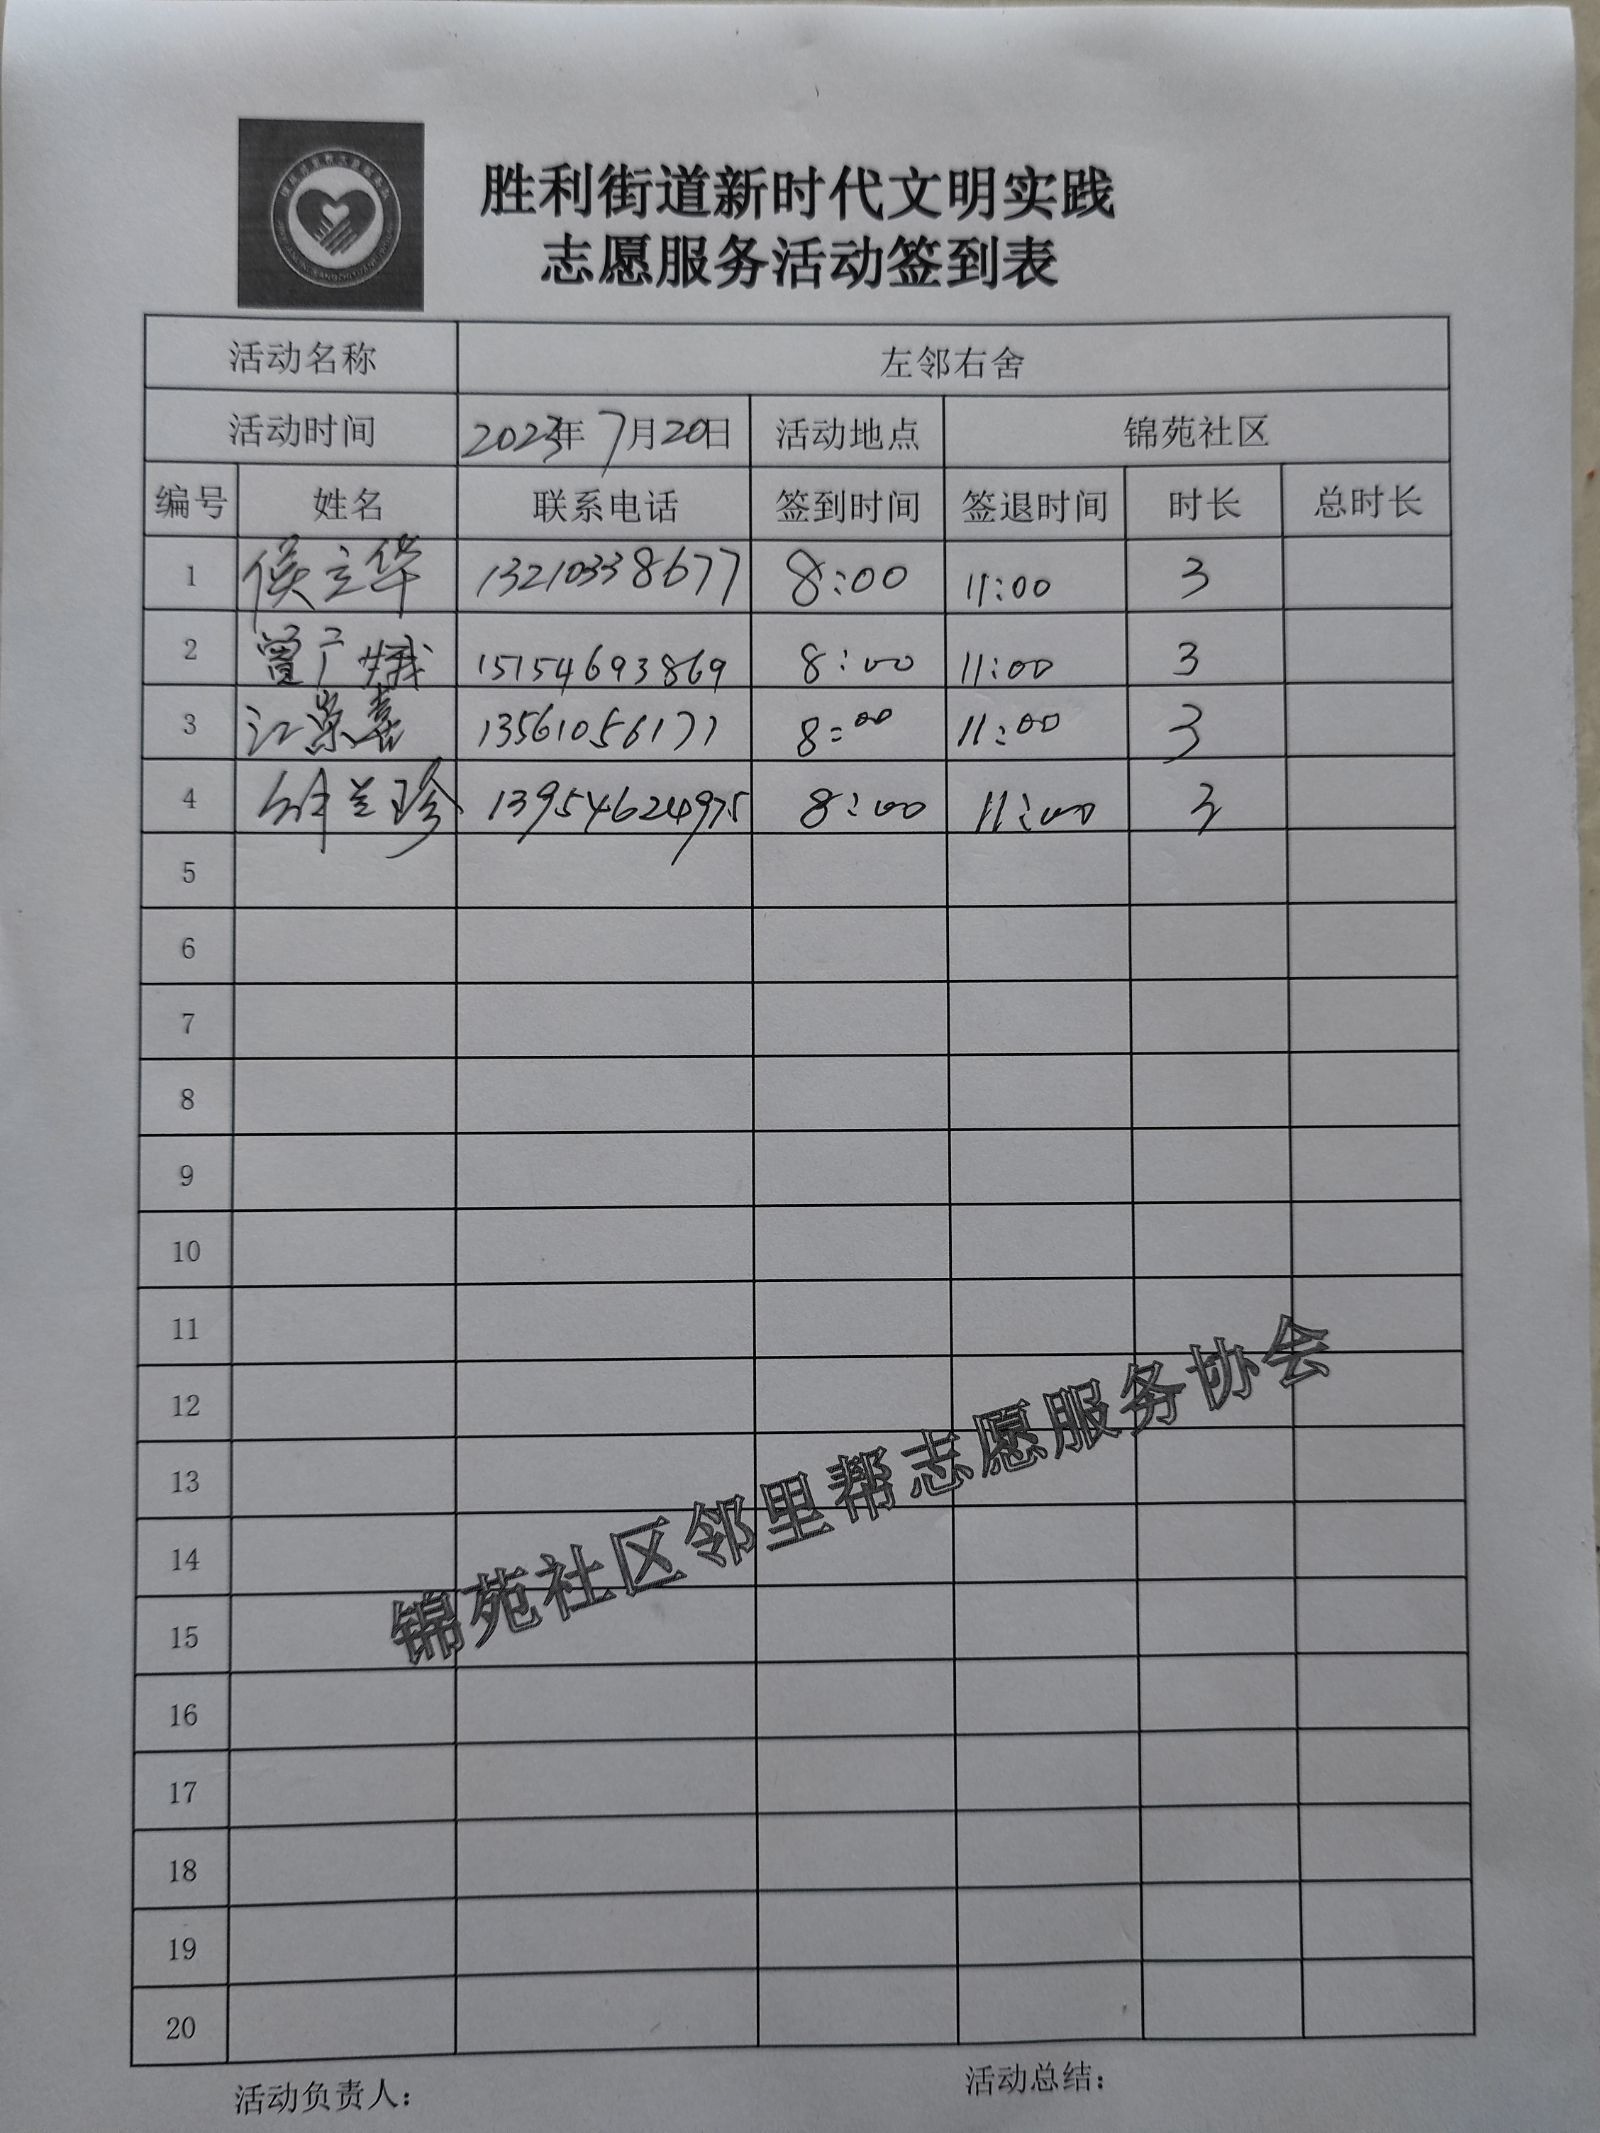 胜利街道新时代文明实践
志愿服务活动签到表
活动名称 左邻右舍
活动时间 2023年7月20日 活动地点 锦苑社区
编号 姓名 联系电话 签到时间 签退时间 时长 总时长
1 侯立华 13210338677 8:00 11:00 3
2 曾广娥 15154693869 8:00 11:00 3
3 江荣喜 13561056171 8:00 11:00 3
4 兰珍 13954624975 8:00 11:00 3
5
6
7
8
9
10
11
12
13
14
15
16
17
18
19
20
锦苑社区邻里帮志愿服务协会
活动负责人： 活动总结：